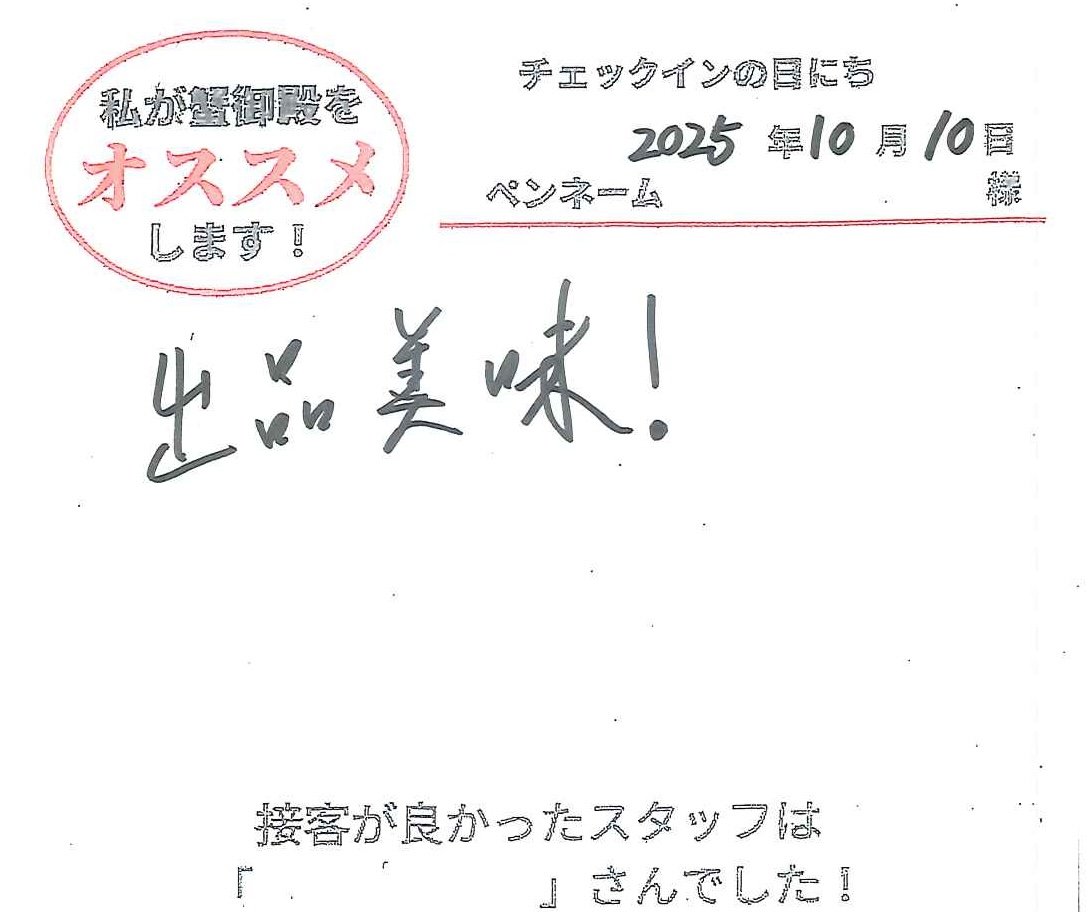 私が蟹御殿を
オススメ
します！
チェックインの日にち
2025年10月10日
ペンネーム 様
出品美味！
接客が良かったスタッフは
「 」さんでした！